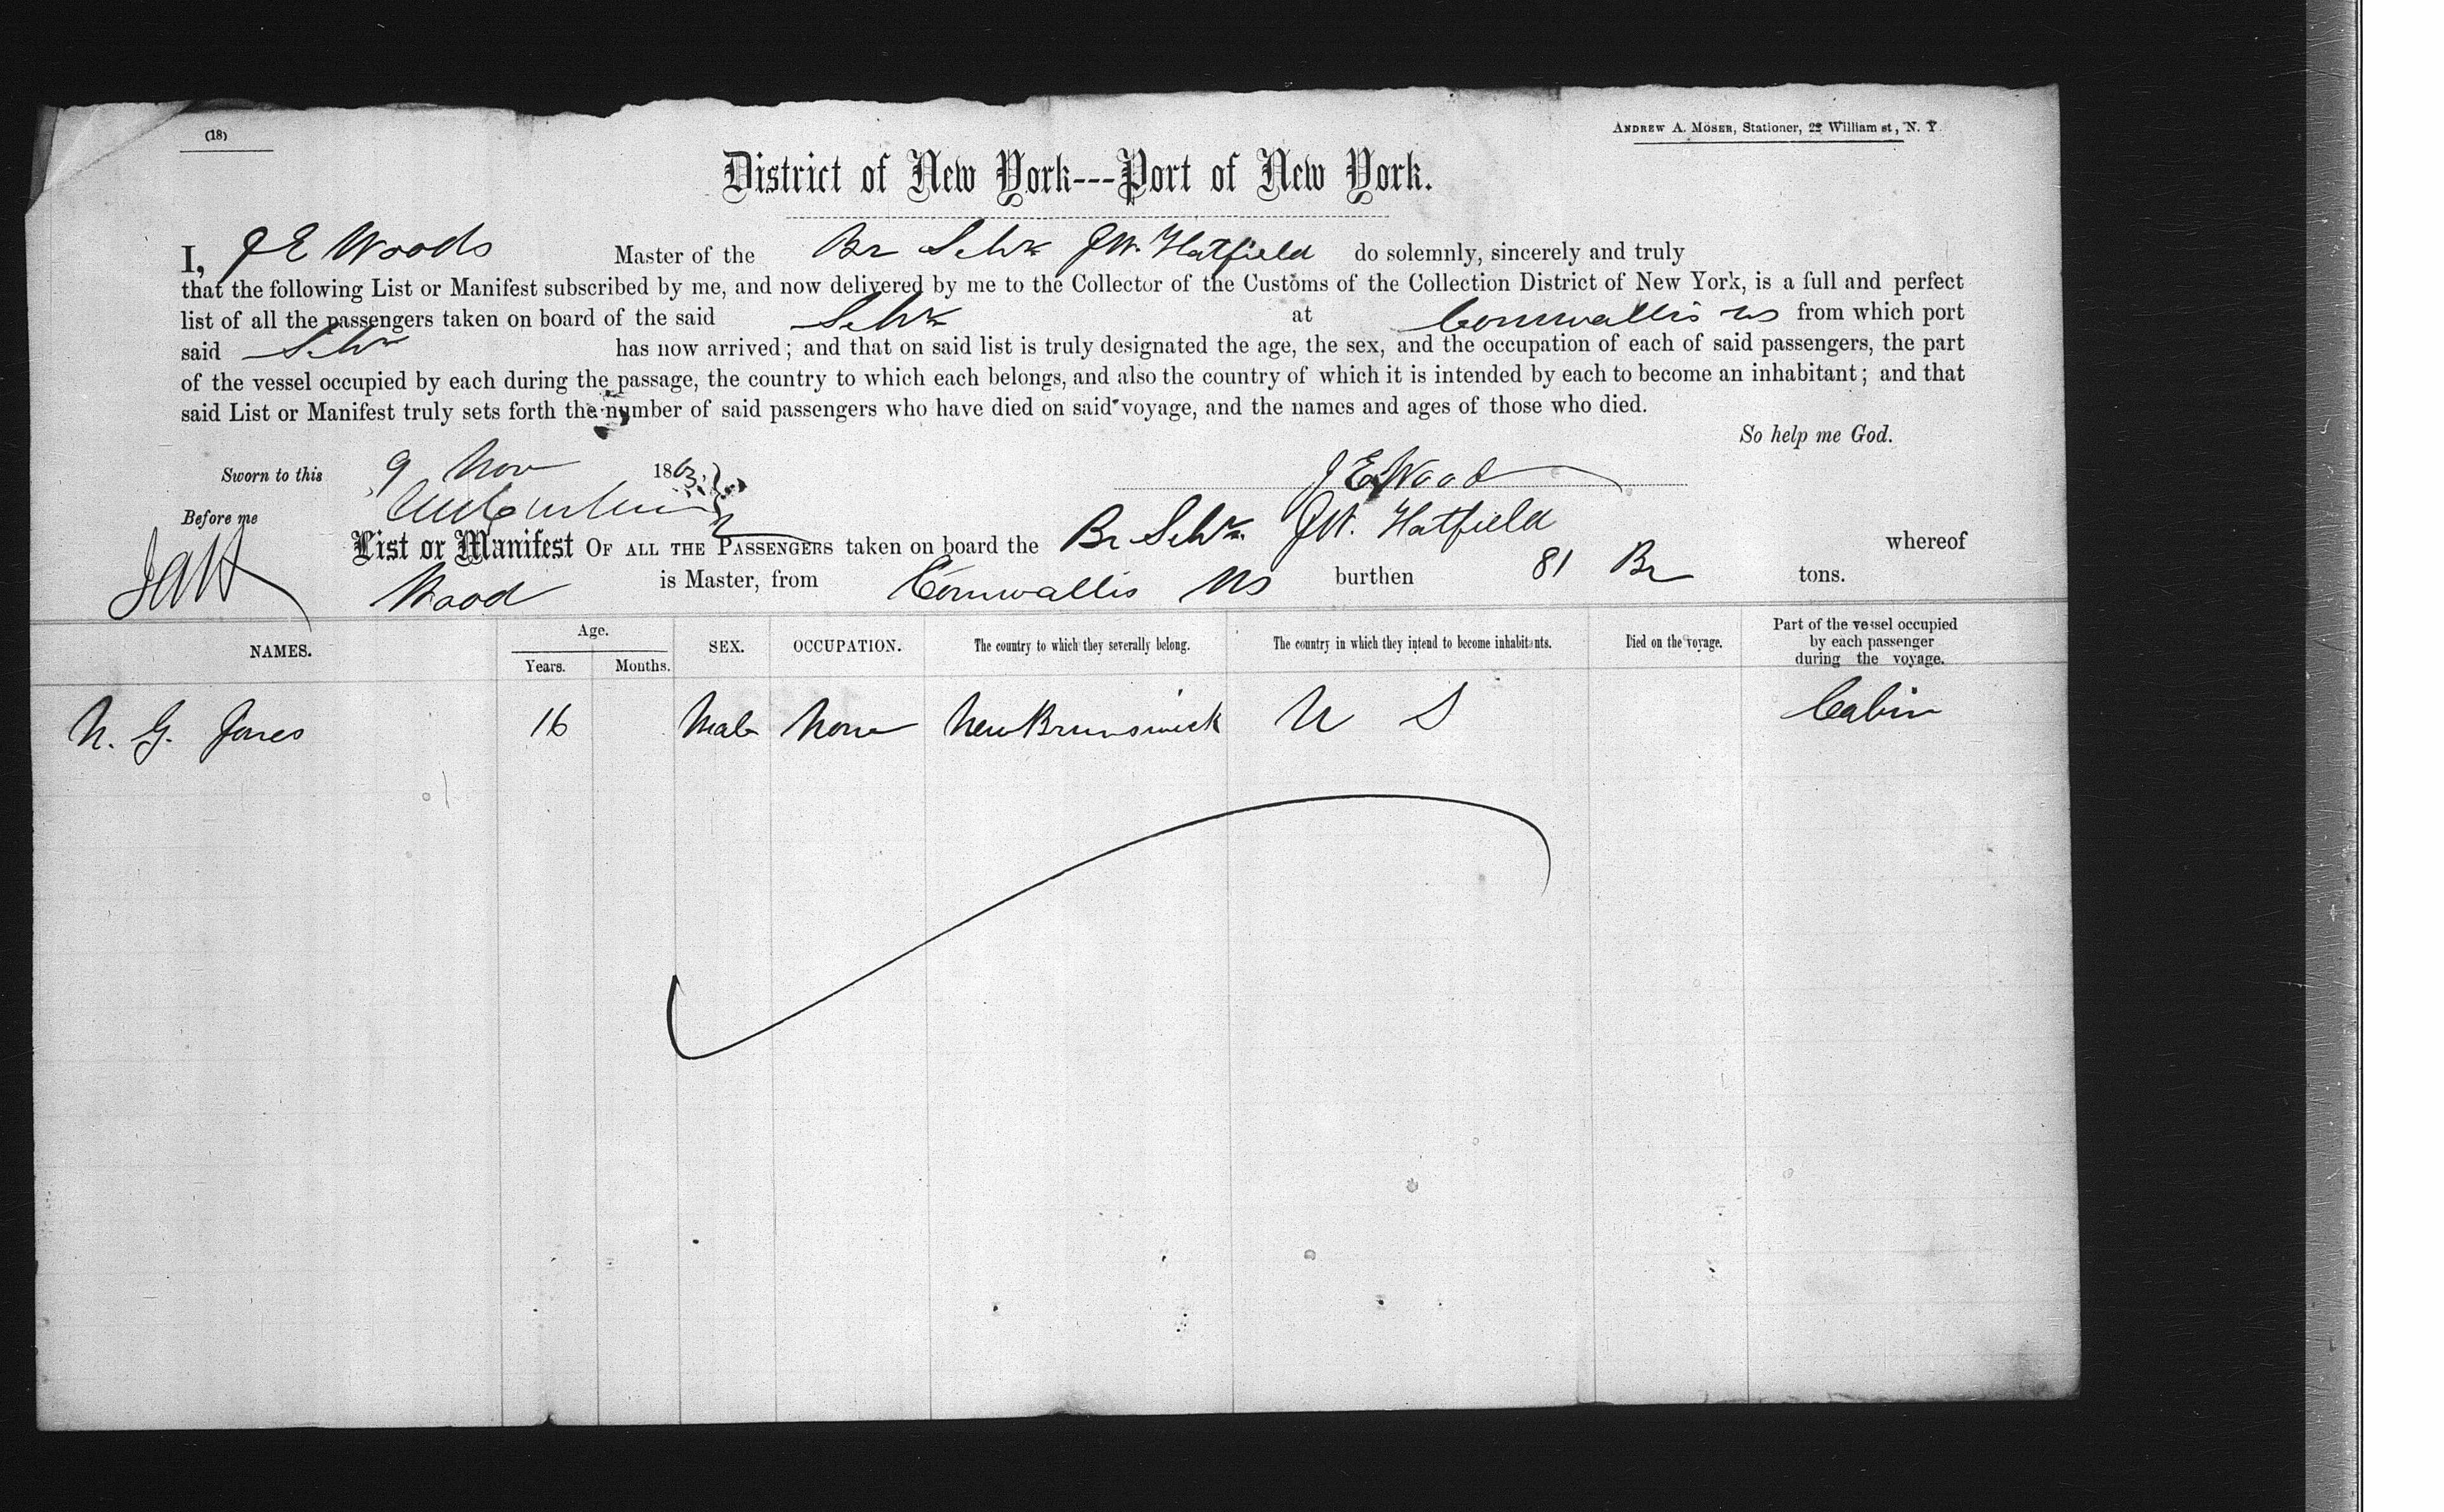 (18)
ANDREW A. MOSER, Stationer, 22 William st, N. Y.
District of New York---Port of New York.
I, J E Woods Master of the Br Schr J W. Hatfield do solemnly, sincerely and truly
that the following List or Manifest subscribed by me, and now delivered by me to the Collector of the Customs of the Collection District of New York, is a full and perfect
list of all the passengers taken on board of the said Schr at Cornwallis NS from which port
said Schr has now arrived; and that on said list is truly designated the age, the sex, and the occupation of each of said passengers, the part
of the vessel occupied by each during the passage, the country to which each belongs, and also the country of which it is intended by each to become an inhabitant; and that
said List or Manifest truly sets forth the number of said passengers who have died on said voyage, and the names and ages of those who died.
So help me God.
Sworn to this 9 Nov 1863 J E Wood
Before me
List or Manifest OF ALL THE PASSENGERS taken on board the Br Schr. J W. Hatfield whereof
Wood is Master, from Cornwallis NS burthen 81 Br tons.
NAMES. Age. Years. Months. SEX. OCCUPATION. The country to which they severally belong. The country in which they intend to become inhabitants. Died on the voyage. Part of the vessel occupied by each passenger during the voyage.
N. G. Jones 16 Male None New Brunswick U S Cabin